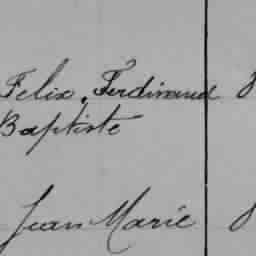 Felix, Ferdinand
Baptiste
Jean Marie